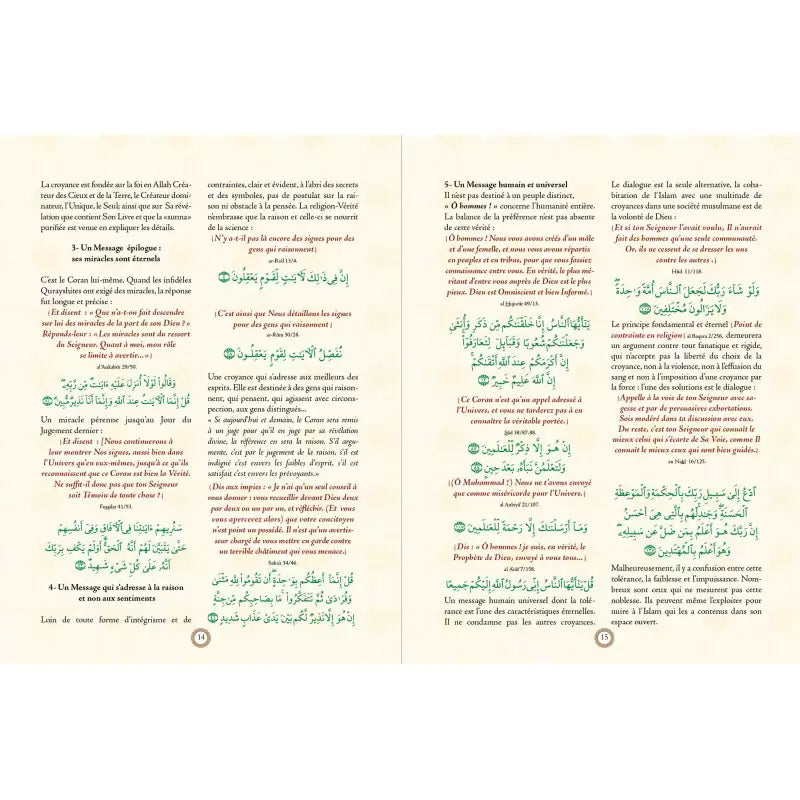 La croyance est fondée sur la foi en Allah Créa-
teur des Cieux et de la Terre, le Créateur domi-
nateur, l'Unique, le Seul; ainsi que sur Sa révé-
lation que contient Son Livre et que la «sunna»
purifiée est venue en expliquer les détails.
3- Un Message épilogue :
ses miracles sont éternels
C'est le Coran lui-même. Quand les infidèles
Qurayshites ont exigé des miracles, la réponse
fut longue et précise :
{Et disent : « Que n'a-t-on fait descendre
sur lui des miracles de la part de son Dieu ? »
Réponds-leur : « Les miracles sont du ressort
du Seigneur. Quant à moi, mon rôle
se limite à avertir... »}
al 'Ankabût 29/50.
وَقَالُوا۟ لَوْلَآ أُنزِلَ عَلَيْهِ ءَايَٰتٌ مِّن رَّبِّهِۦ
قُلْ إِنَّمَا ٱلْءَايَٰتُ عِندَ ٱللَّهِ وَإِنَّمَآ أَنَا۠ نَذِيرٌ مُّبِينٌ
Un miracle pérenne jusqu'au Jour du
Jugement dernier :
{Et disent : [Nous continuerons à
leur montrer Nos signes, aussi bien dans
l'Univers qu'en eux-mêmes, jusqu'à ce qu'ils
reconnaissent que ce Coran est bien la Vérité.
Ne suffit-il donc pas que ton Seigneur
soit Témoin de toute chose ?}
Fuṣṣilat 41/53.
سَنُرِيهِمْ ءَايَٰتِنَا فِى ٱلْءَافَاقِ وَفِىٓ أَنفُسِهِمْ
حَتَّىٰ يَتَبَيَّنَ لَهُمْ أَنَّهُ ٱلْحَقُّ أَوَلَمْ يَكْفِ بِرَبِّكَ
أَنَّهُۥ عَلَىٰ كُلِّ شَىْءٍ شَهِيدٌ
4- Un Message qui s'adresse à la raison
et non aux sentiments
Loin de toute forme d'intégrisme et de
contraintes, clair et évident, à l'abri des secrets
et des symboles, pas de postulat sur la rai-
son ni obstacle à la pensée. La religion-Vérité
n'embrasse que la raison et celle-ci se nourrit
de la science :
{N'y a-t-il pas là encore des signes pour des
gens qui raisonnent}
ar-Ra'd 13/4.
إِنَّ فِى ذَٰلِكَ لَءَايَٰتٍ لِّقَوْمٍ يَعْقِلُونَ
{C'est ainsi que Nous détaillons les signes
pour des gens qui raisonnent}
ar-Rûm 30/28.
نُفَصِّلُ ٱلْءَايَٰتِ لِقَوْمٍ يَعْقِلُونَ
Une croyance qui s'adresse aux meilleurs des
esprits. Elle est destinée à des gens qui raison-
nent, qui pensent, qui agissent avec circons-
pection, aux gens distingués...
« Si aujourd'hui et demain, le Coran sera remis
à un juge pour qu'il en juge par sa révélation
divine, la référence en sera la raison. S'il argu-
mente, c'est par le jugement de la raison, s'il est
indigné c'est envers les faibles d'esprit, s'il est
satisfait c'est envers les prévoyants.»
{Dis aux impies : « Je n'ai qu'un seul conseil à
vous donner : vous recueillir devant Dieu deux
par deux ou un par un, et réfléchir. (Et vous
vous apercevrez alors) que votre concitoyen
n'est point un possédé. Il n'est qu'un avertis-
seur chargé de vous mettre en garde contre
un terrible châtiment qui vous menace.}
Sabaà 34/46.
قُلْ إِنَّمَآ أَعِظُكُم بِوَٰحِدَةٍ أَن تَقُومُوا۟ لِلَّهِ مَثْنَىٰ
وَفُرَٰدَىٰ ثُمَّ تَتَفَكَّرُوا۟ مَا بِصَاحِبِكُم مِّن جِنَّةٍ
إِنْ هُوَ إِلَّا نَذِيرٌ لَّكُم بَيْنَ يَدَىْ عَذَابٍ شَدِيدٍ
14
5- Un Message humain et universel
Il n'est pas destiné à un peuple distinct,
« Ô hommes ! » concerne l'humanité entière.
La balance de la préférence n'est pas absente
de cette vérité :
{Ô hommes ! Nous vous avons créés d'un mâle
et d'une femelle, et nous vous avons répartis
en peuples et en tribus, pour que vous fassiez
connaissance entre vous. En vérité, le plus mé-
ritant d'entre vous auprès de Dieu est le plus
pieux. Dieu est Omniscient et bien Informé.}
al Ḥujurât 49/13.
يَٰٓأَيُّهَا ٱلنَّاسُ إِنَّا خَلَقْنَٰكُم مِّن ذَكَرٍ وَأُنثَىٰ
وَجَعَلْنَٰكُمْ شُعُوبًا وَقَبَآئِلَ لِتَعَارَفُوٓا۟
إِنَّ أَكْرَمَكُمْ عِندَ ٱللَّهِ أَتْقَىٰكُمْ
إِنَّ ٱللَّهَ عَلِيمٌ خَبِيرٌ
{Ce Coran n'est qu'un appel adressé à
l'Univers, et vous ne tarderez pas à en
connaître la véritable portée.}
Ṣâd 38/87-88.
إِنْ هُوَ إِلَّا ذِكْرٌ لِّلْعَٰلَمِينَ
وَلَتَعْلَمُنَّ نَبَأَهُۥ بَعْدَ حِينٍ
{(Ô Muhammad !) Nous ne t'avons envoyé
que comme miséricorde pour l'Univers.}
al Anbiyâ' 21/107.
وَمَآ أَرْسَلْنَٰكَ إِلَّا رَحْمَةً لِّلْعَٰلَمِينَ
{Dis : « Ô hommes ! je suis, en vérité, le
Prophète de Dieu, envoyé à vous tous...}
al A'râf 7/158.
قُلْ يَٰٓأَيُّهَا ٱلنَّاسُ إِنِّى رَسُولُ ٱللَّهِ إِلَيْكُمْ جَمِيعًا
Un message humain universel dont la tolé-
rance est l'une des caractéristiques éternelles.
Il ne condamne pas les autres croyances.
Le dialogue est la seule alternative, la coha-
bitation de l'Islam avec une multitude de
croyances dans une société musulmane est de
la volonté de Dieu :
{Et si ton Seigneur l'avait voulu, Il n'aurait
fait des hommes qu'une seule communauté.
Or, ils ne cessent de se dresser les uns
contre les autres .}
Hûd 11/118.
وَلَوْ شَآءَ رَبُّكَ لَجَعَلَ ٱلنَّاسَ أُمَّةً وَٰحِدَةً
وَلَا يَزَالُونَ مُخْتَلِفِينَ
Le principe fondamental et éternel {Point de
contrainte en religion} al Baqara 2/256, demeurera
un argument contre tout fanatique et rigide,
qui n'accepte pas la liberté du choix de la
croyance, non à la violence, non à l'effusion du
sang et non à l'imposition d'une croyance par
la force : l'une des solutions est le dialogue :
{Appelle à la voie de ton Seigneur avec sa-
gesse et par de persuasives exhortations.
Sois modéré dans ta discussion avec eux.
Du reste, c'est ton Seigneur qui connaît le
mieux celui qui s'écarte de Sa Voie, comme Il
connaît le mieux ceux qui sont bien guidés.}
an Naḥl 16/125.
ٱدْعُ إِلَىٰ سَبِيلِ رَبِّكَ بِٱلْحِكْمَةِ وَٱلْمَوْعِظَةِ
ٱلْحَسَنَةِ وَجَٰدِلْهُم بِٱلَّتِى هِىَ أَحْسَنُ
إِنَّ رَبَّكَ هُوَ أَعْلَمُ بِمَن ضَلَّ عَن سَبِيلِهِۦ
وَهُوَ أَعْلَمُ بِٱلْمُهْتَدِينَ
Malheureusement, il y a confusion entre cette
tolérance, la faiblesse et l'impuissance. Nom-
breux sont ceux qui ne mesurent pas cette
noblesse. Ils peuvent même l'exploiter pour
nuire à l'Islam qui les a contenus dans son
espace ouvert.
15